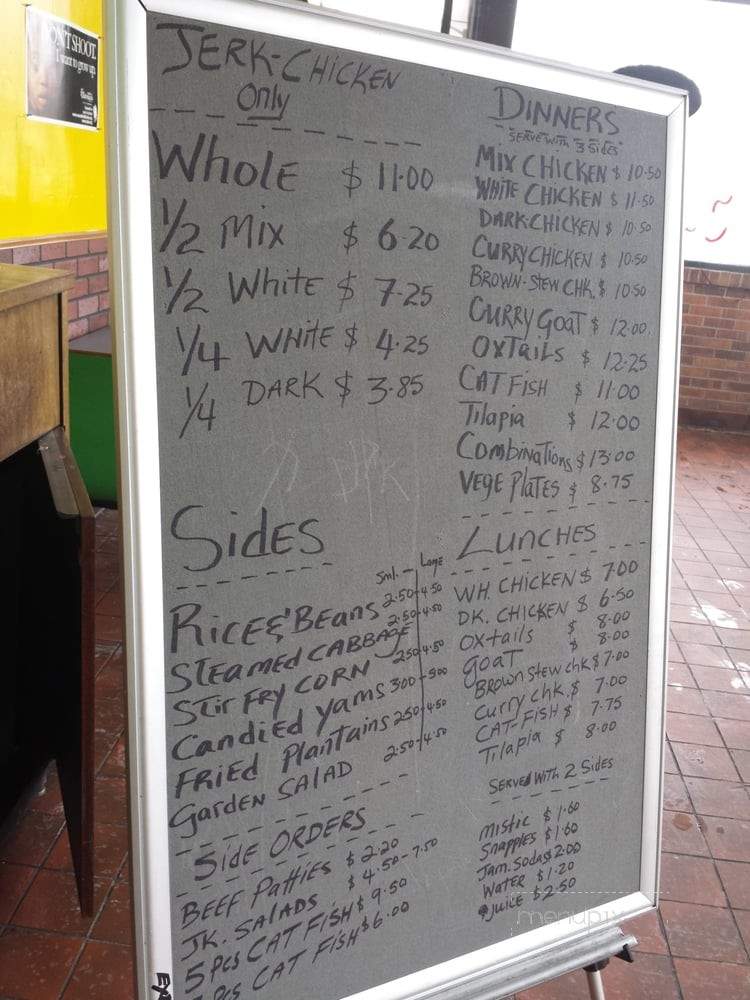 DON'T SHOOT
I want to grow up.
JERK-CHICKEN
Only
Whole $ 11.00
1/2 Mix $ 6.20
1/2 White $ 7.25
1/4 WHITE $ 4.25
1/4 DARK $ 3.85
Sides
Sml. - Large
RICE &' BEANS 2.50-4.50
STEAMED CABBAGE 2.50-4.50
Stir FRY CORN 2.50-4.50
Candied Yams 3.00-5.00
FRIED Plantains 2.50-4.50
Garden SALAD 2.50-4.50
Side ORDERS
BEEF PaTTiES $ 2.20
JK. SALADS $ 4.50-7.50
5 Pcs CAT FISH $ 9.50
Pcs CAT FISH $ 6.00
DINNERS
SERVE WITH 3 SIDES
MIX CHICKEN $ 10.50
WHITE CHICKEN $ 11.50
DARK-CHICKEN $ 10.50
CURRY CHICKEN $ 10.50
BROWN-STEW CHK. $ 10.50
CURRY GOAT $ 12.00.
OXTAILS $ 12.25
CAT FISH $ 11.00
Tilapia $ 12.00
Combinations $ 13.00
VEGE PLATES $ 8.75
LUNCHES
WH. CHICKEN $ 7.00
DK. CHICKEN $ 6.50
OX-tails $ 8.00
goat $ 8.00
BROWN Stew chk $ 7.00
Curry chk. $ 7.00
CAT-FISH $ 7.75
Tilapia $ 8.00
SERVED WITH 2 SIDES
mistic $ 1.60
Snapples $ 1.60
Jam. Sodas $ 2.00
WATER $ 1.20
JUICE $ 2.50
menupix